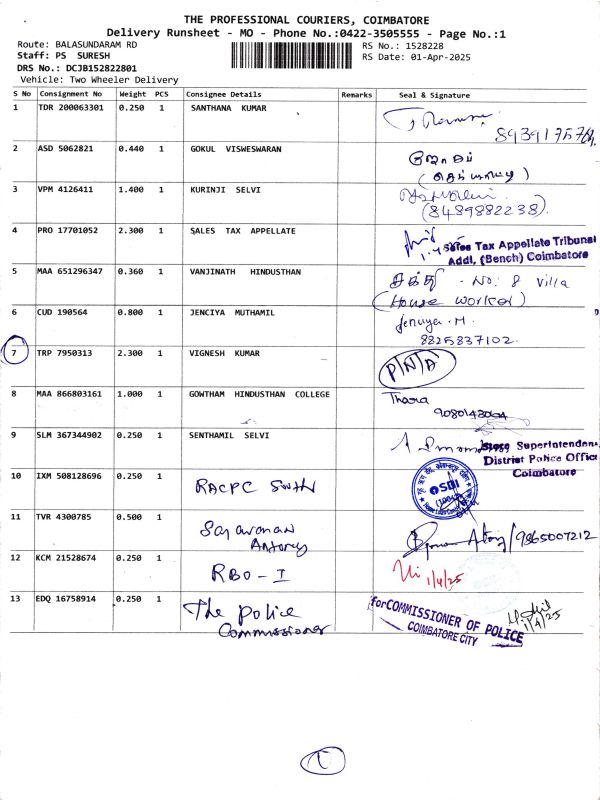 THE PROFESSIONAL COURIERS, COIMBATORE
Delivery Runsheet - MO - Phone No.:0422-3505555 - Page No.:1
Route: BALASUNDARAM RD RS No.: 1528228
Staff: PS SURESH RS Date: 01-Apr-2025
DRS No.: DCJB152822801
Vehicle: Two Wheeler Delivery
S No Consignment No Weight PCS Consignee Details Remarks Seal & Signature
1 TDR 200063301 0.250 1 SANTHANA KUMAR
2 ASD 5062821 0.440 1 GOKUL VISWESWARAN
3 VPM 4126411 1.400 1 KURINJI SELVI
(8489882238)
4 PRO 17701052 2.300 1 SALES TAX APPELLATE
Sales Tax Appellate Tribunal
Addl, (Bench) Coimbatore
5 MAA 651296347 0.360 1 VANJINATH HINDUSTHAN
சக்தி - No: 8 Villa
(House worker)
6 CUD 190564 0.800 1 JENCIYA MUTHAMIL
8825837102
7 TRP 7950313 2.300 1 VIGNESH KUMAR
P/N/A
8 MAA 866803161 1.000 1 GOWTHAM HINDUSTHAN COLLEGE
Thara
9 SLM 367344902 0.250 1 SENTHAMIL SELVI
Store Superintendent
District Police Office
Coimbatore
10 IXM 508128696 0.250 1 RACPC South
SBI
11 TVR 4300785 0.500 1 Saravanan
Antony
9865007212
12 KCM 21528674 0.250 1 RBO - I
1/4/25
13 EDQ 16758914 0.250 1 The Police
Commissioner
for COMMISSIONER OF POLICE
COIMBATORE CITY
1/4/25